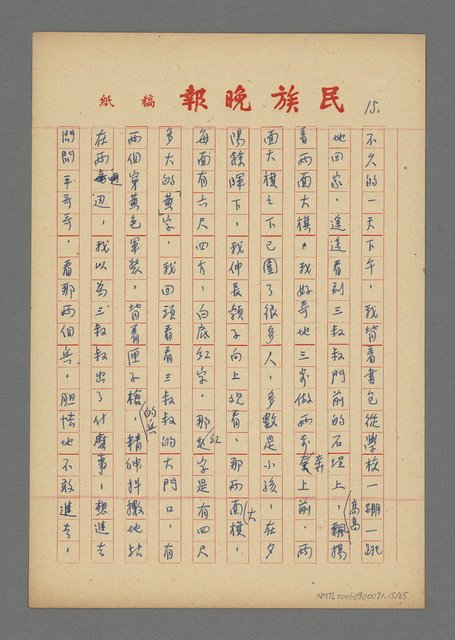 民族晚報 稿紙
15.
不久的一天下午,我背着書包從學校一蹦一跳
地回家,遠遠看到三叔叔門前的石埕上,高高飄揚
着兩面大旗。我好奇地三步做兩步奔上前,兩
面大旗之下已圍了很多人,多數是小孩,在夕
陽餘暉下,我伸長頸子向上望看,那兩面大旗,
每面有六尺四方,白底紅字,那紅字是有四尺
多大的「黃」字,我回頭看看三叔叔的大門口,有
兩個穿黃色軍裝,背着匣子槍的兵,精神抖擻地站
在兩邊,我以為三叔叔出了什麼事,想進去
問問平哥哥,看那兩個兵,胆怯地不敢進去,
NMTL20060900071.15/65